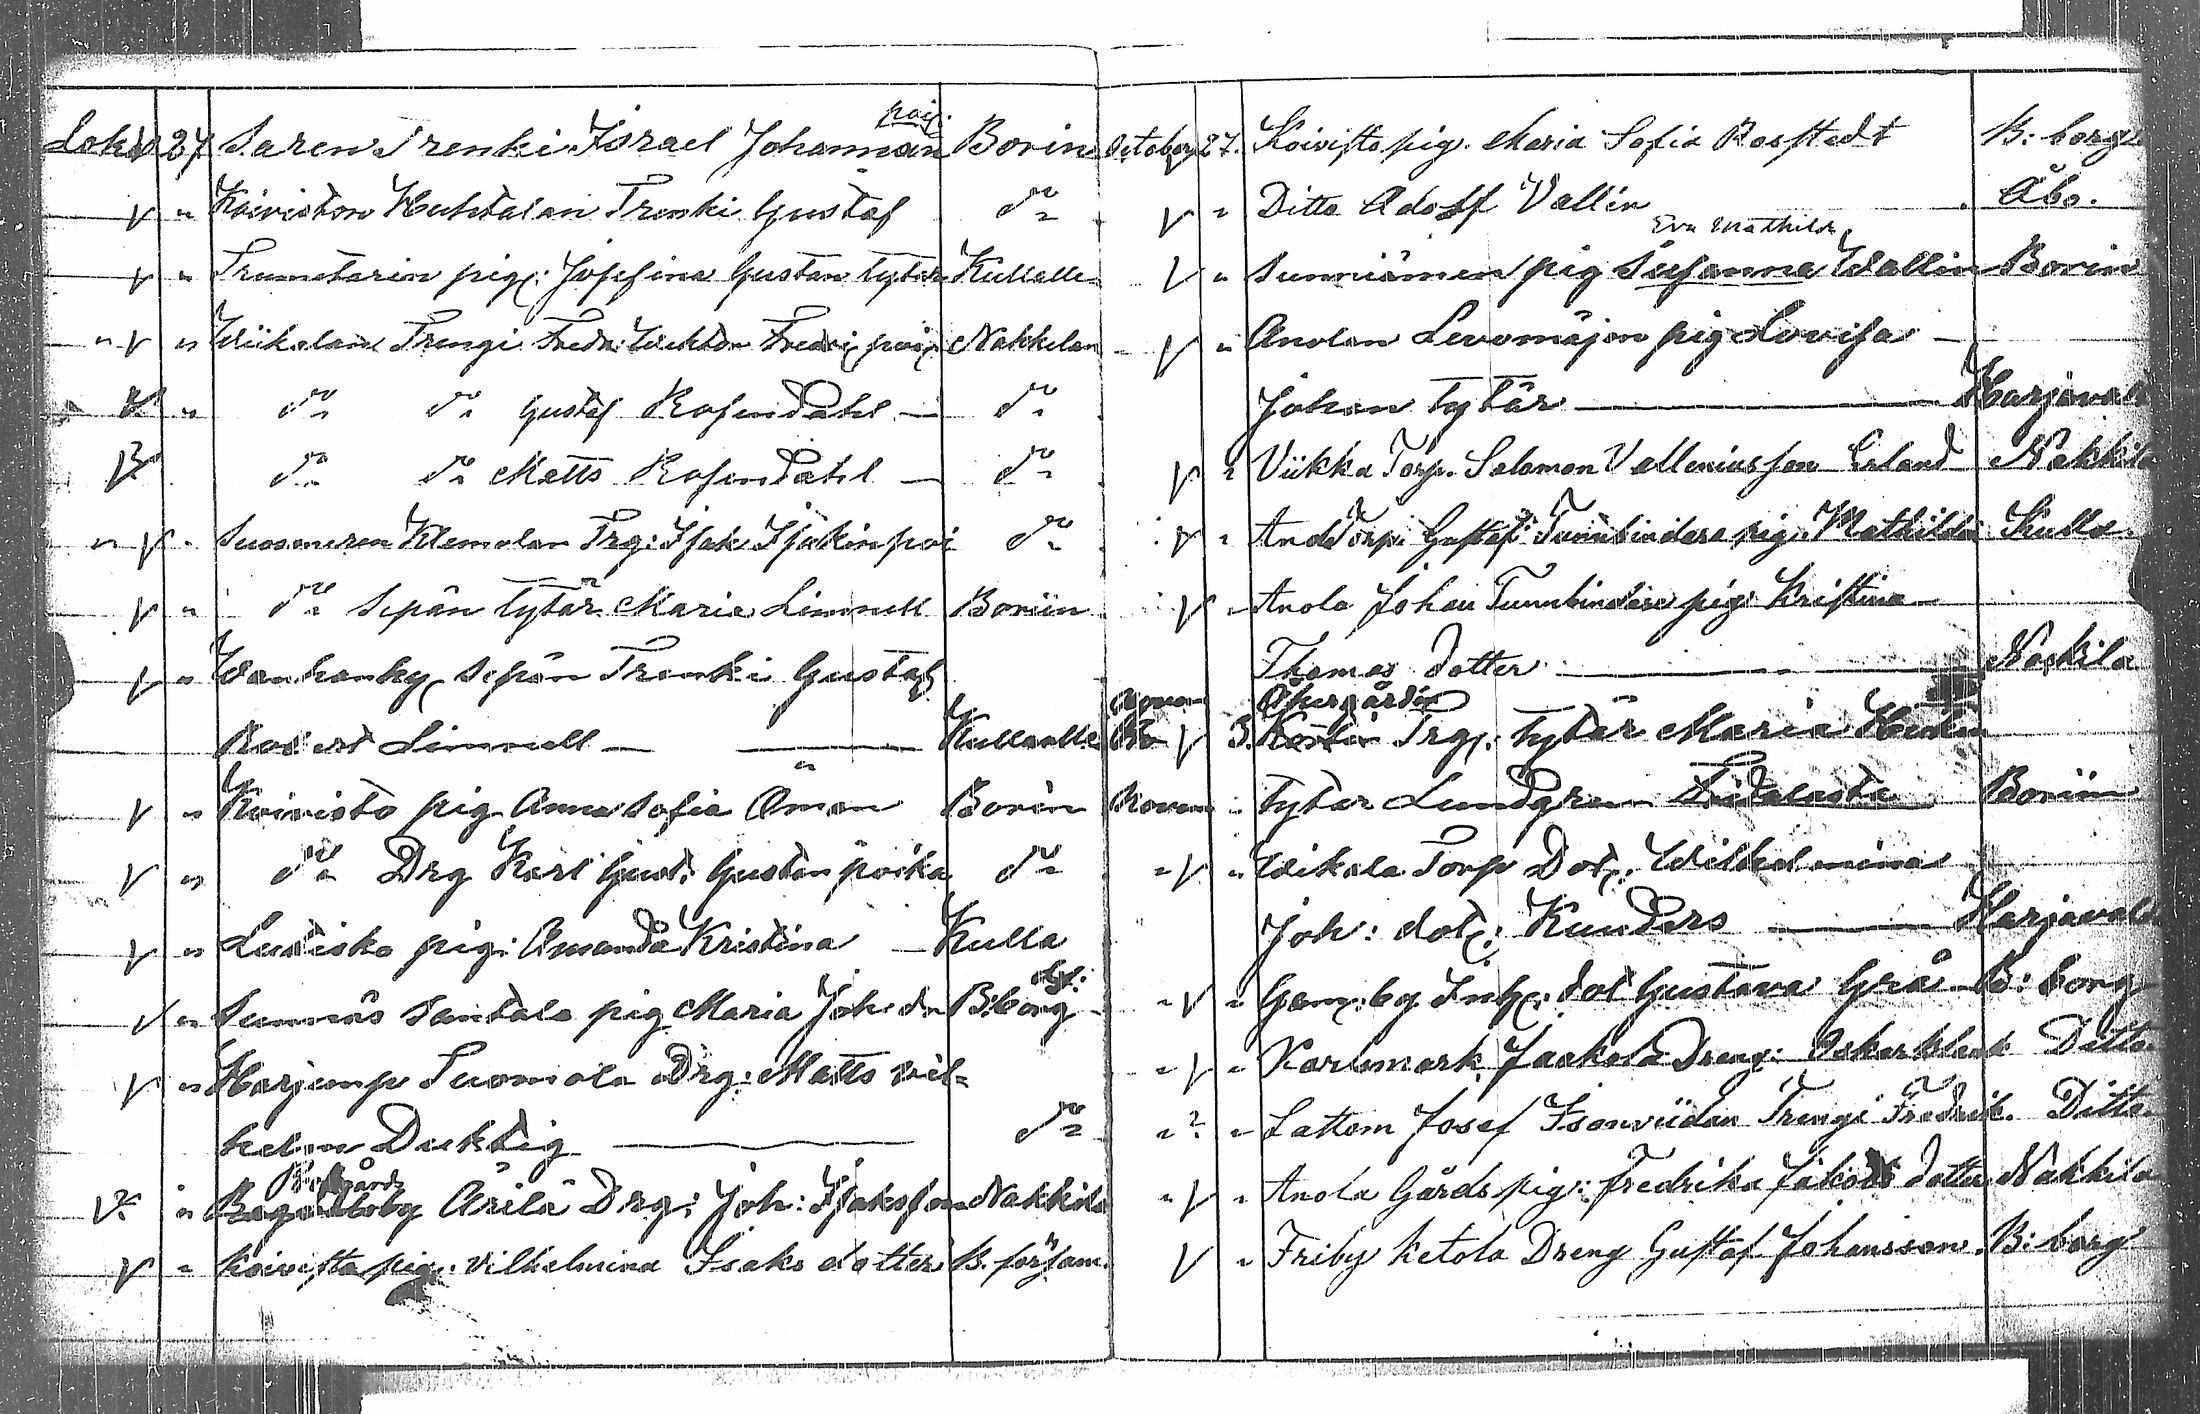 Lok. 27 Saren Trenki Israel Johannan poij. Borin
V " Koiviston Huhtalan Trenki Gustaf do
V " Trumetarin pig: Josefina Gustan tytär Kullalle
" V " Wiikalan Trengi Fredr: Wichtor Fredri poij Nakkilan
V " do do Gustaf Rosendahl — do
V do do Matts Rosendahl — do
" V " Suosmeren Klemolan Trg: Isak Isakin poi do
V " do Sepän tytär Maria Limnell Boriin
V " Wanhanky Sepän Trenki Gustaf
Robert Limnell — Kullaalle
V " Koivisto pig Anna Sofia Öman Borin
V " do Drg Karl Gust: Gustan poika do
V " Ludisko pig: Amanda Kristina — Kulla
V " Sunnäs Santala pig Maria Joh: do B:borg
V " Harjunp Tuomola Drg: Matts Vil=
helm Duktig — do
V " Arila Drg: Joh: Isaksson Nakkila
V " Koivisto pig: Vilhelmina Isaks dotter B. församl.
October 27. Koivisto pig. Maria Sofia Rosstedt B:borg
V " Ditto Adolf Vallin Åbo.
Eva Mathilda
V " Sunniämen pig Susanna Wallin Borin
V " Anolan Levomäjon pig Lovisa —
Johan tytär — Harjavald
V " Viikka Torp. Salomon Valleniusson Erland Nakkila
V " And Torp. Gustaf Tunnbindare pig. Mathilda Kulla.
V " Anola Johan Tunnbindare pig: Kristina —
Thomas dotter — Nackila
Åkergårdin
V 3. Trg: tytär Maria
" tytär Lundgren Boriin
" V " Wikala Torp Dot: Wilhelmina
Joh: dot: Kunders — Harjavald
" V " Gam:by Inh: dot Gustava Grå B:borg
" V " Karlsmark Jaakola Dreng: Oskar Ditto
" ? " Lattom Josef Isonviidan Trengi Fredrik. Ditto.
" V " Anola Gårds pig: Fredrika Jakobs dotter Nakkila
V " Friby Ketola Dreng Gustaf Johansson. B:borg